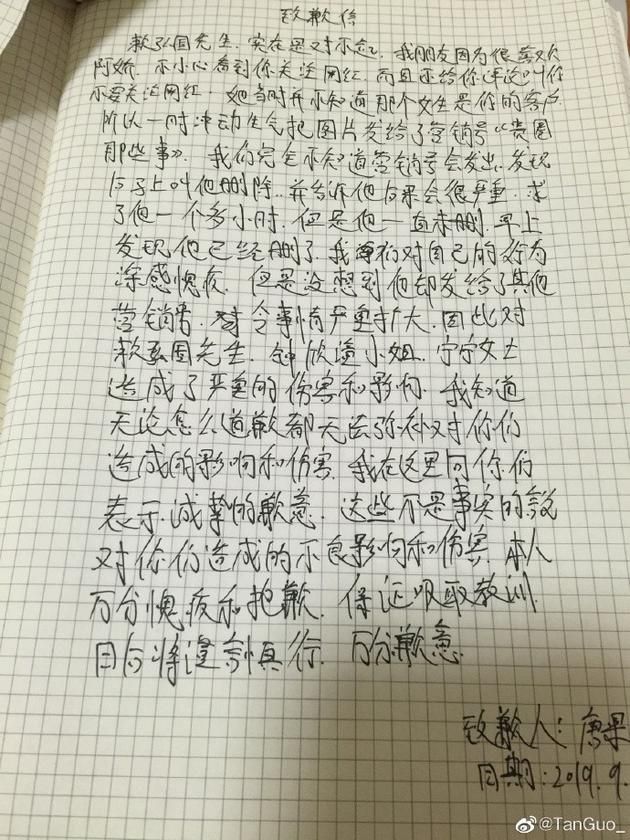 致歉信
赖弘国先生. 实在是对不起. 我朋友因为很喜欢
阿娇. 不小心看到你关注网红. 而且还给你评论叫你
不要关注网红. 她当时并不知道那个女生是你的客户
所以一时冲动生气把图片发给了营销号《贵圈
那些事》. 我们完全不知道营销号会发出. 发现
后马上叫他删除. 并告诉他后果会很严重. 求
了他一个多小时. 但是他一直未删. 早上
发现他已经删了. 我们对自己的行为
深感愧疚. 但是没想到他却发给了其他
营销号. 令事情严重扩大. 因此对
赖弘国先生. 钟欣潼小姐. 宁宁女士
造成了严重的伤害和影响. 我知道
无论怎么道歉都无法弥补对你们
造成的影响和伤害. 我在这里向你们
表示诚挚的歉意. 这些不是事实的
对你们造成的不良影响和伤害. 本人
万分愧疚和抱歉. 保证吸取教训.
日后将谨言慎行. 万分歉意.
致歉人: 唐果
日期: 2019.9.
@TanGuo_